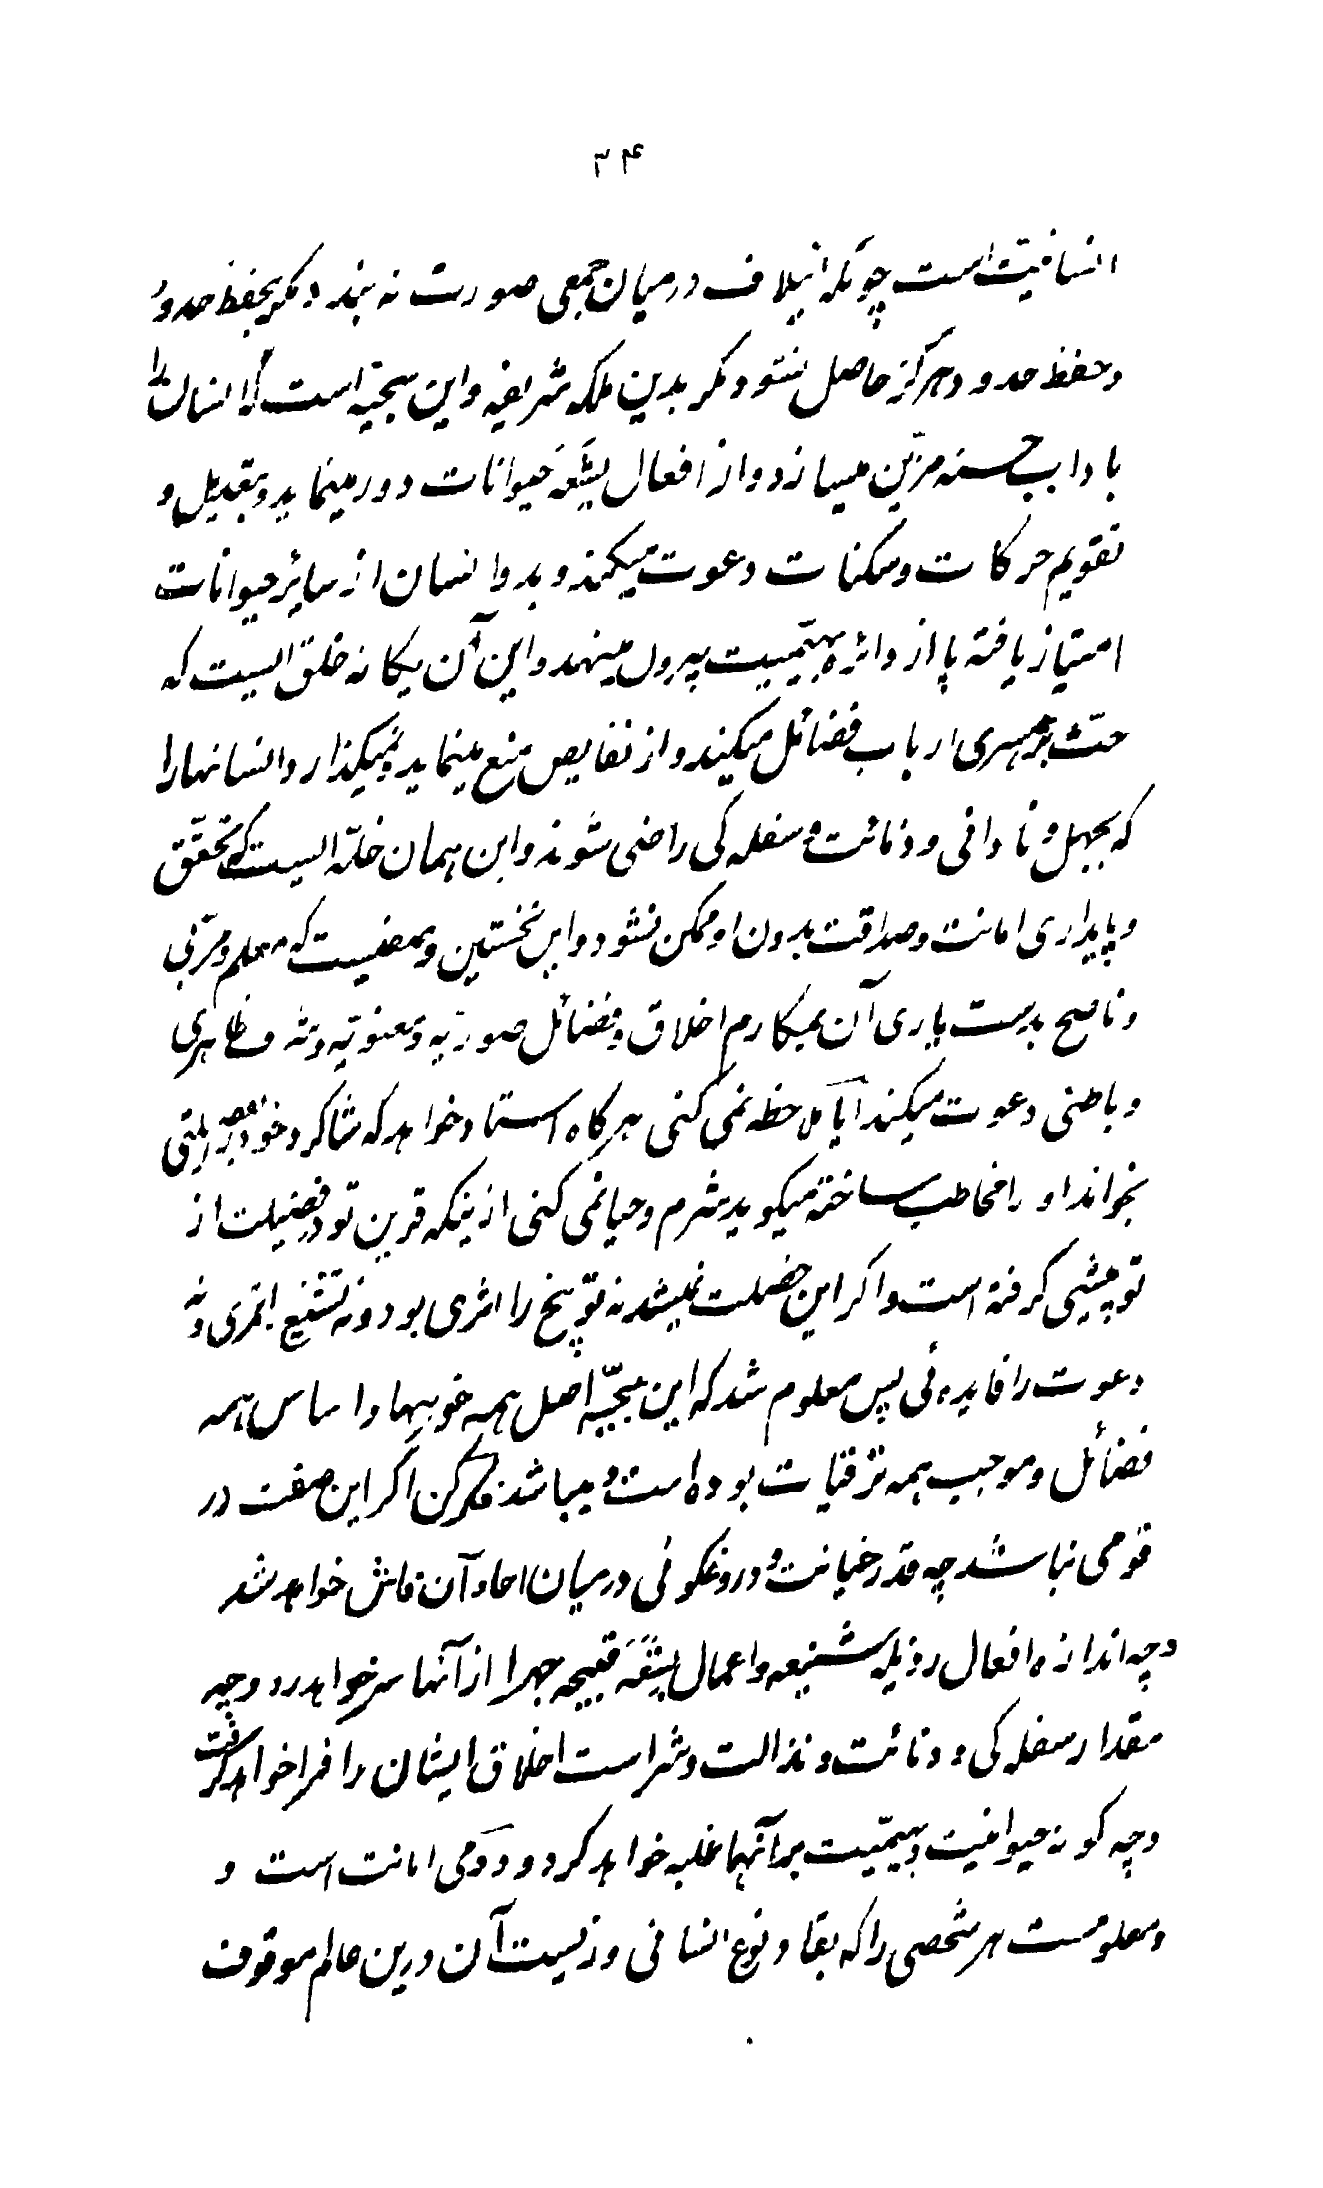 ۳۴
انسانیت است چونکه ائیلاف درمیان جمعی صورت نه بندد مگر بحفظ حدود
و حفظ حدود هرگز حاصل نشود مگر بدین ملکه شریفه و این سجیّه است که انسان را
باداب حسنه مزیّن میسازد و از افعال بشعهٔ حیوانات دور مینماید و بتعدیل و
تقویم حرکات و سکنات دعوت میکند و بدو انسان از سایر حیوانات
امتیاز یافته پا از دائره بهیمیت بیرون مینهد و این آن یکانه خلق است که
حثّ بر همسری ارباب فضائل میکند و از نقایص منع مینماید و نمیکذارد انسانها را
که بجهل و نادانی و دنائت و سفله کی راضی شوند و این همان خلّه ایست که تحقّق
و پایداری امانت و صداقت بدون او ممکن نشود و این نخستین وصفیست که معلم و مربّی
و ناصح بدست یاری آن بمکارم اخلاق و فضائل صوریّه و معنویّه و شرف ظاهری
و باطنی دعوت میکند آیا ملاحظه نمی کنی هرگاه استاد خواهد که شاکرد خود را بفضیلتی
بخواند او را مخاطب ساخته میکوید شرم و حیا نمی کنی ازینکه قرین تو در فضیلت از
تو پیشی گرفته است و اگر این خصلت نمیشد نه توبیخ را اثری بود و نه تشنیع را ثمری و نه
دعوت را فایده ئی پس معلوم شد که این سجیّه اصل همه خوبیها و اساس همه
فضائل و موجب همه ترقیات بوده است و میباشد فکر کن اگر این صفت در
قومی نباشد چه قدر خیانت و دروغکوئی درمیان احاد آن فاش خواهد شد
و چه اندازه افعال رذیله شنیعه و اعمال بشعهٔ قبیحه جهرا از آنها سر خواهد زد و چه
مقدار سفله کی و دنائت و نذالت و شراست اخلاق ایشان را فرا خواهد گرفت
و چه کونه حیوانیت و بهیمّیت بر آنها غلبه خواهد کرد و دوّمی امانت است و
و معلومست هر شخصی را که بقاء نوع انسانی و زیست آن درین عالم موقوف